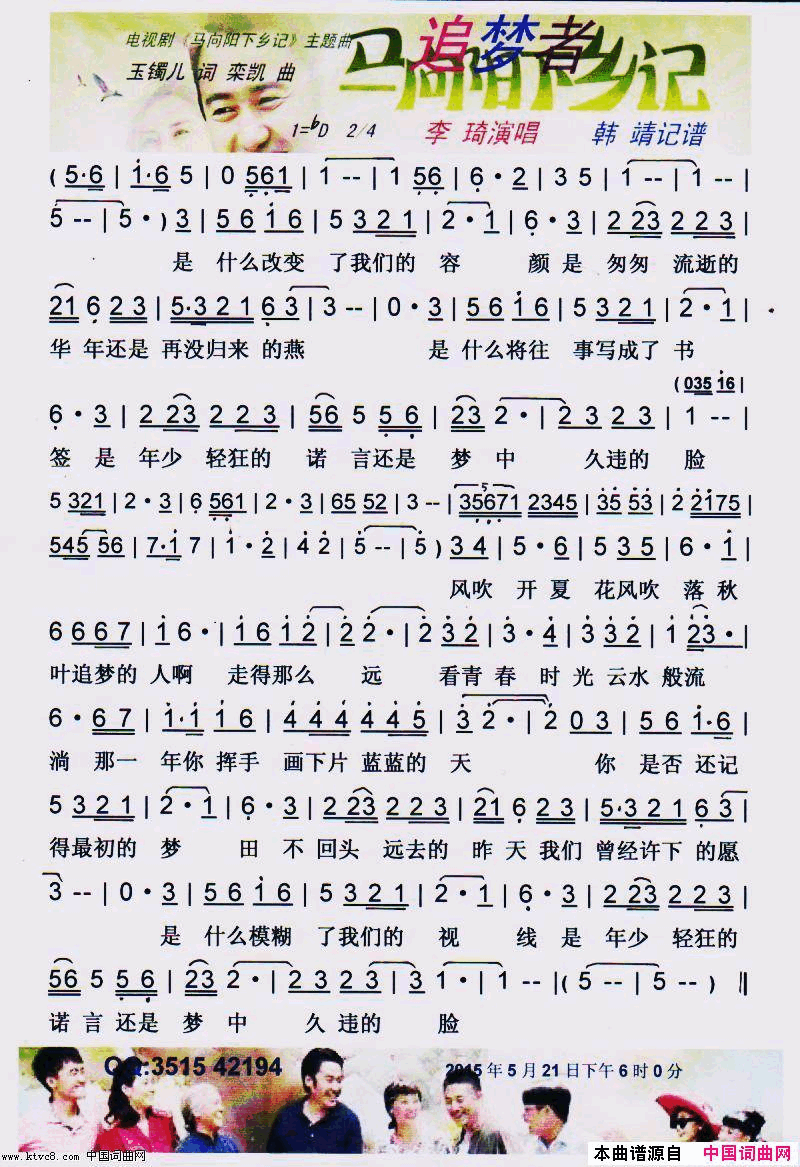 电视剧《马向阳下乡记》主题曲
追梦者
马向阳下乡记
玉镯儿 词 栾凯 曲
1=♭D 2/4 李 琦演唱 韩 靖记谱
(5·6 | 1·6 5 | 0 561 | 1 -- | 1 56 | 6·2 | 3 5 | 1 -- | 1 -- |
5 -- | 5·) 3 | 56 16 | 5 321 | 2·1 | 6·3 | 2 23 2 23 |
是 什么改变 了我们的 容 颜是 匆匆 流逝的
21 6 23 | 5·321 63 | 3 -- | 0·3 | 56 16 | 5 321 | 2·1 |
华 年还是 再没归来 的燕 是 什么将往 事写成了 书
(035 16 |
6·3 | 2 23 2 23 | 56 5 56 | 23 2· | 2 3 2 23 | 1 -- |
签是 年少 轻狂的 诺 言还是 梦中 久违的 脸
5 321 | 2·3 | 6 561 | 2·3 | 65 52 | 3 -- | 35671 2345 | 35 53 | 2 2175 |
5
545 56 | 7·1 7 | 1·2 | 4 2 | 5 -- | 5) 34 | 5·6 | 5 35 | 6·1 |
风吹 开夏 花风吹 落秋
6 6 6 7 | 1 6· | 1 6 1 2 | 2 2· | 2 3 2 | 3·4 | 3 3 2 | 1 23· |
叶追梦的 人啊 走得那么 远 看青 春 时 光 云水 般流
6·67 | 1·1 1 6 | 4 4 4 4 4 5 | 3 2· | 2 0 3 | 5 6 1·6 |
淌 那一 年你 挥手 画下片 蓝蓝的 天 你 是否 还记
5 321 | 2·1 | 6·3 | 2 23 2 23 | 21 6 23 | 5·321 63 |
得最初的 梦 田 不 回头 远去的 昨 天我们 曾经许下 的愿
3 -- | 0·3 | 56 16 | 5 321 | 2·1 | 6·3 | 2 23 2 23 |
是 什么模糊 了我们的 视 线是 年少 轻狂的
56 5 56 | 23 2· | 2 3 2 23 | 3 1· | 1 -- |( 5 -- | 5 -- ) ||
诺 言 还是 梦 中 久 违的 脸
QQ:3515 42194
2015年5月21日下午6时0分
www.ktvc8.com 中国词曲网
本曲谱源自 中国词曲网